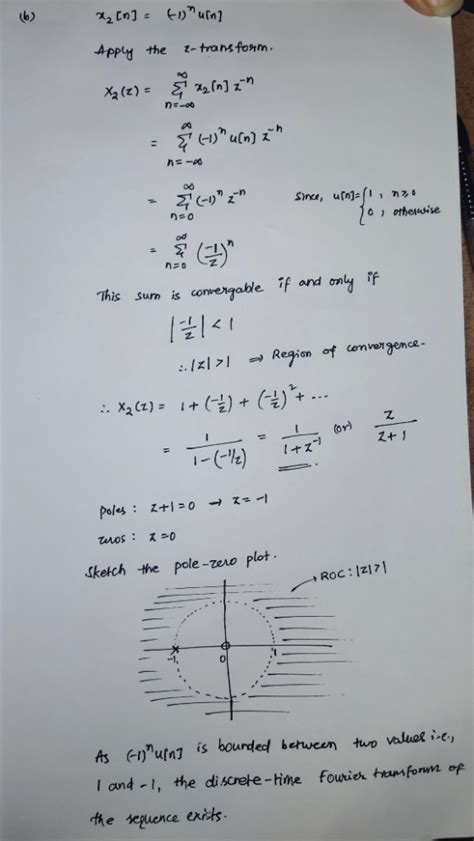 (b) x₂[n] = (-1)ⁿ u[n]
Apply the z-transform.
X₂(z) = ∞ Σ n=-∞ x₂[n] z⁻ⁿ
= ∞ Σ n=-∞ (-1)ⁿ u[n] z⁻ⁿ
= ∞ Σ n=0 (-1)ⁿ z⁻ⁿ Since, u[n] = { 1, n≥0
0, otherwise
= ∞ Σ n=0 (-1/z)ⁿ
This sum is convergable if and only if
|-1/z| < 1
∴ |z| > 1 ⇒ Region of convergence.
∴ X₂(z) = 1 + (-1/z) + (-1/z)² + ...
= 1/(1-(-1/z)) = 1/(1+z⁻¹) (or) z/(z+1)
poles : z+1=0 → z=-1
zeros : z=0
Sketch the pole-zero plot.
ROC: |z|>1
-1 0 1
As (-1)ⁿu[n] is bounded between two values i.e.,
1 and -1, the discrete-time Fourier transform of
the sequence exists.